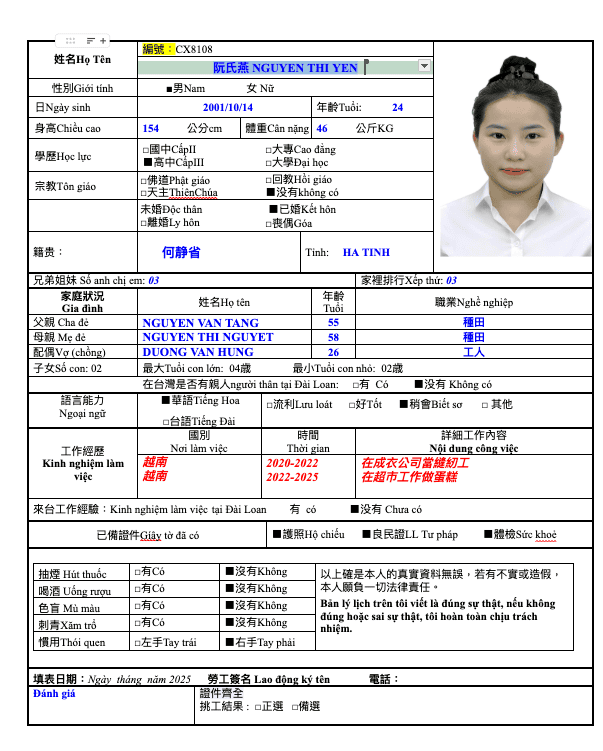 編號：CX8108
姓名Họ Tên
阮氏燕 NGUYEN THI YEN
性別Giới tính ■男Nam 女 Nữ
日Ngày sinh 2001/10/14 年齡Tuổi: 24
身高Chiều cao 154 公分cm 體重Cân nặng 46 公斤KG
學歷Học lực □國中CấpII □大專Cao đẳng
■高中CấpIII □大學Đại học
宗教Tôn giáo □佛道Phật giáo □回教Hồi giáo
□天主ThiênChúa ■没有không có
未婚Độc thân ■已婚Kết hôn
□離婚Ly hôn □喪偶Góa
籍贵： 何静省 Tỉnh: HA TINH
兄弟姐妹 Số anh chị em: 03 家裡排行Xếp thứ: 03
家庭狀況 Gia đình 姓名Họ tên 年齡 Tuổi 職業Nghề nghiệp
父親 Cha đẻ NGUYEN VAN TANG 55 種田
母親 Mẹ đẻ NGUYEN THI NGUYET 58 種田
配偶Vợ (chồng) DUONG VAN HUNG 26 工人
子女Số con: 02 最大Tuổi con lớn: 04歲 最小Tuổi con nhỏ: 02歲
在台灣是否有親人người thân tại Đài Loan: □有 Có ■没有 Không có
語言能力 Ngoại ngữ ■華語Tiếng Hoa □流利Lưu loát □好Tốt ■稍會Biết sơ □ 其他
□台語Tiếng Đài
工作經歷 Kinh nghiệm làm việc 國別 Nơi làm việc 時間 Thời gian 詳細工作內容 Nội dung công việc
越南 2020-2022 在成衣公司當縫紉工
越南 2022-2025 在超市工作做蛋糕
來台工作經驗：Kinh nghiệm làm việc tại Đài Loan 有 có ■没有 Chưa có
已備證件Giây tờ đã có ■護照Hộ chiếu ■良民證LL Tư pháp ■體檢Sức khoẻ
抽煙 Hút thuốc □有Có ■沒有Không
喝酒 Uống rượu □有Có ■沒有Không
色盲 Mù màu □有Có ■沒有Không
刺青Xăm trổ □有Có ■沒有Không
慣用Thói quen □左手Tay trái ■右手Tay phải
以上確是本人的真實資料無誤，若有不實或造假，
本人願負一切法律責任。
Bản lý lịch trên tôi viết là đúng sự thật, nếu không
đúng hoặc sai sự thật, tôi hoàn toàn chịu trách
nhiệm.
填表日期：Ngày tháng năm 2025 勞工簽名 Lao động ký tên 電話：
Đánh giá 證件齊全
挑工結果：□正選 □備選